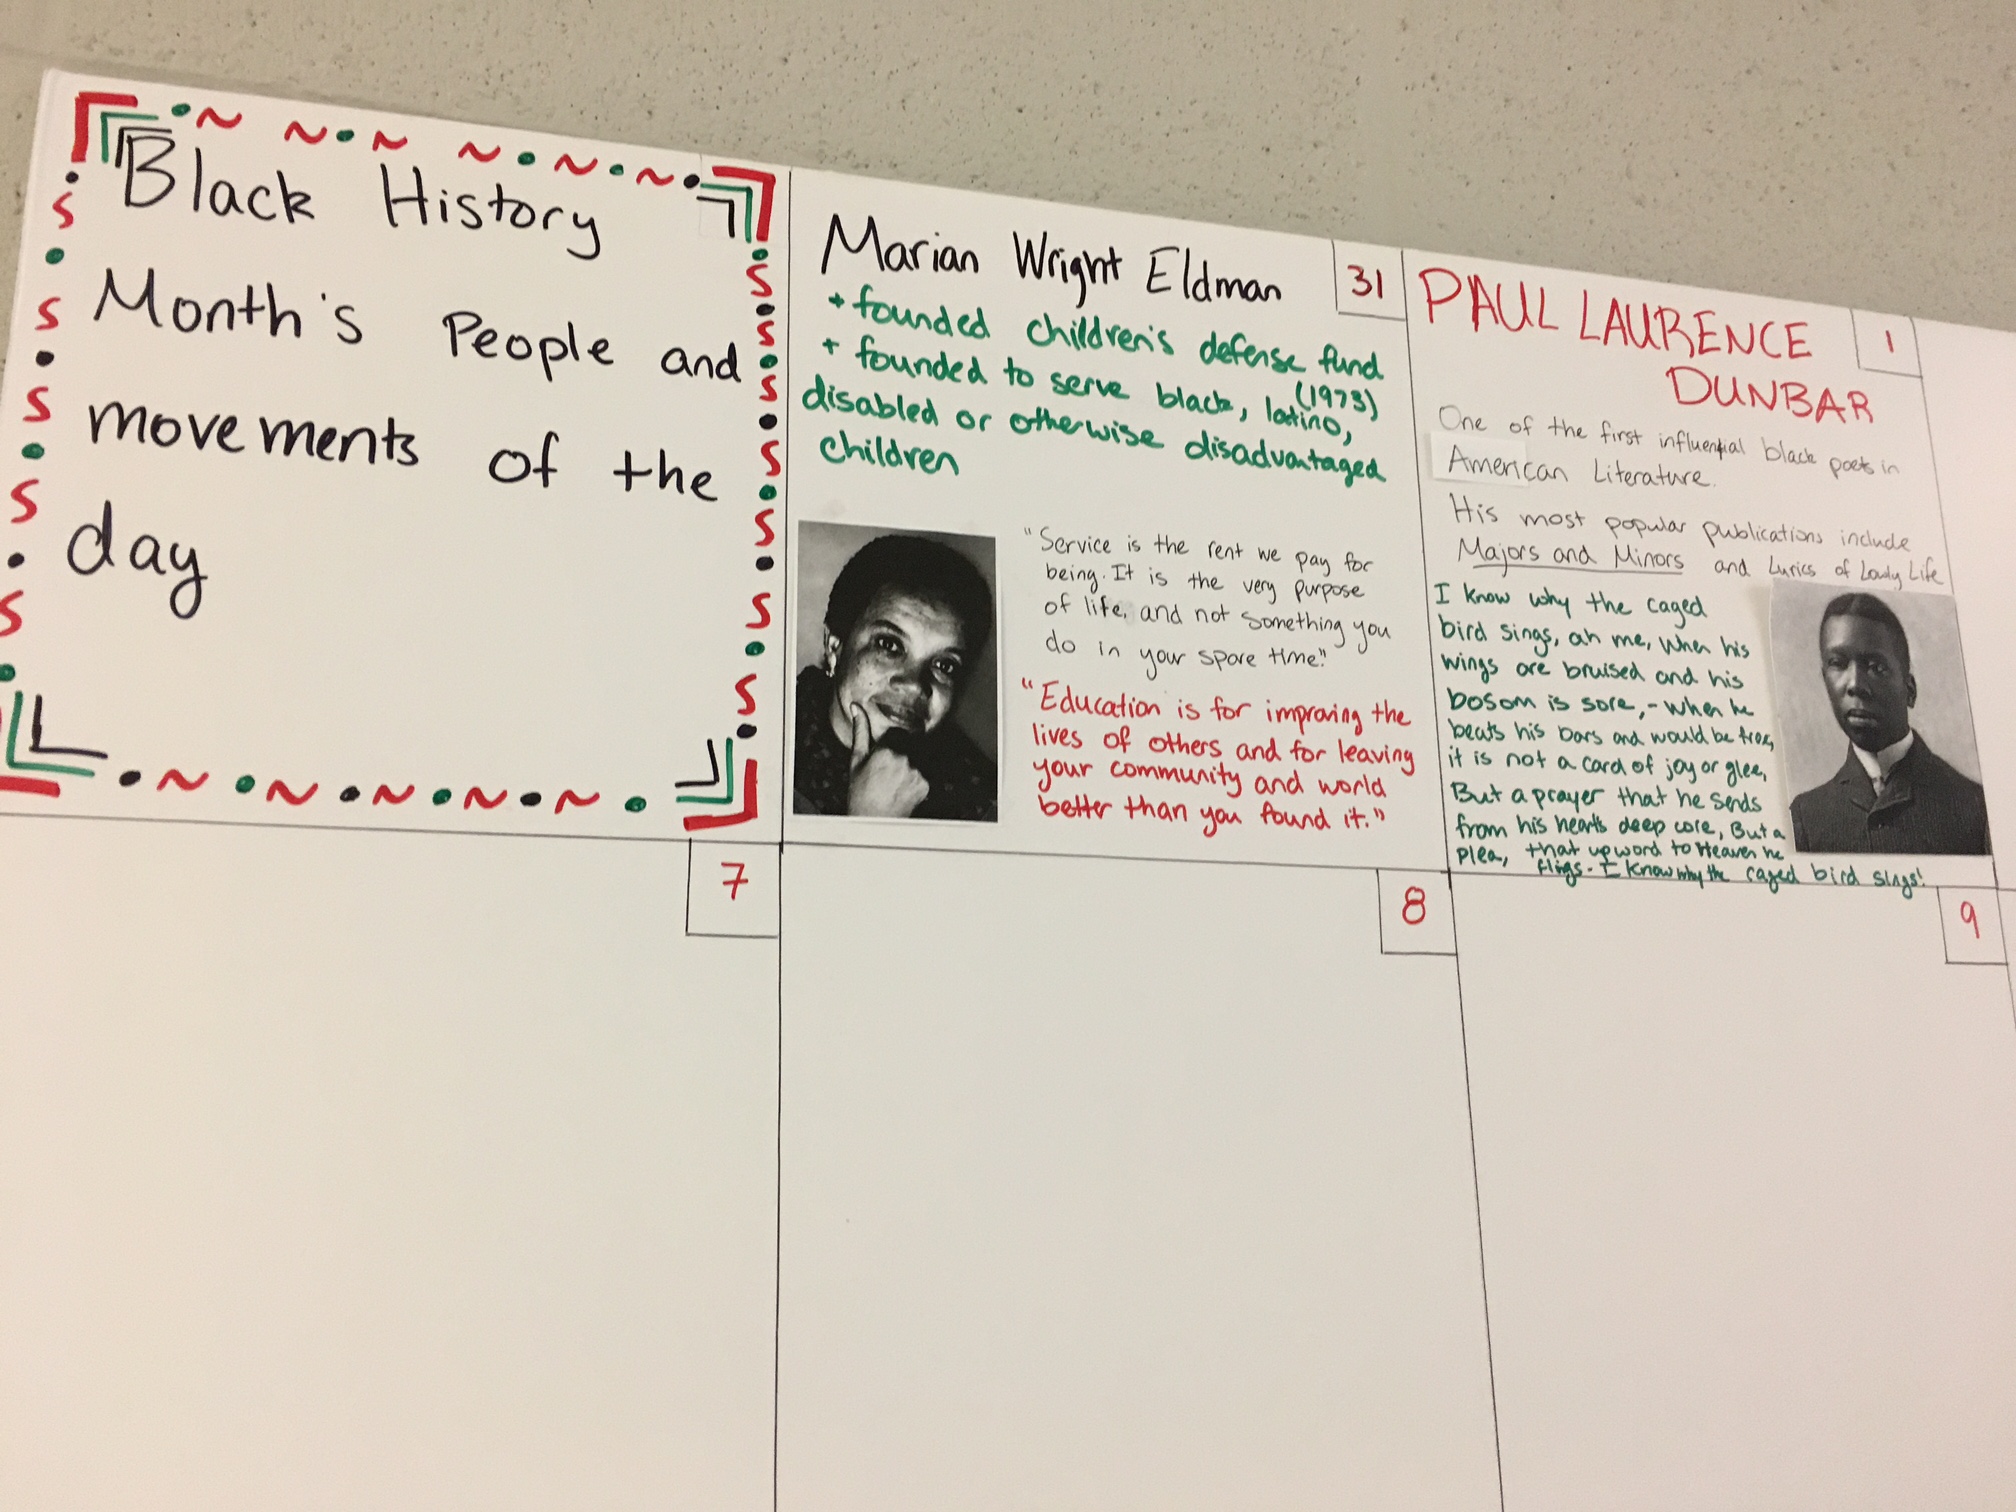 Black History
Month's People and
movements of the
day
Marian Wright Eldman
31
+ founded children's defense fund
(1973)
+ founded to serve black, latino,
disabled or otherwise disadvantaged
children
"Service is the rent we pay for
being. It is the very purpose
of life, and not something you
do in your spare time."
"Education is for improving the
lives of others and for leaving
your community and world
better than you found it."
PAUL LAURENCE
DUNBAR
1
One of the first influential black poets in
American Literature.
His most popular publications include
Majors and Minors and Lyrics of Lowly Life
I know why the caged
bird sings, ah me, when his
wings are bruised and his
bosom is sore,- when he
beats his bars and would be free,
it is not a carol of joy or glee,
But a prayer that he sends
from his heart's deep core, But a
plea, that upword to Heaven he
flings- I know why the caged bird sings!
7
8
9